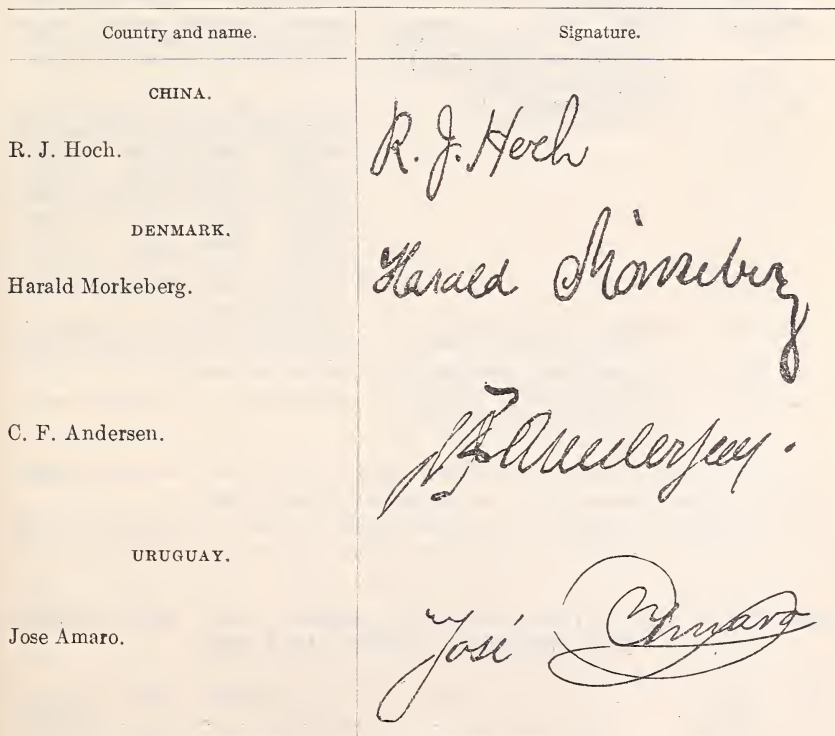 Country and name. Signature.
CHINA.
R. J. Hoch. R. J. Hoch
DENMARK.
Harald Morkeberg. Harald Mörkeberg
C. F. Andersen. CF Andersen.
URUGUAY.
Jose Amaro. José Amaro